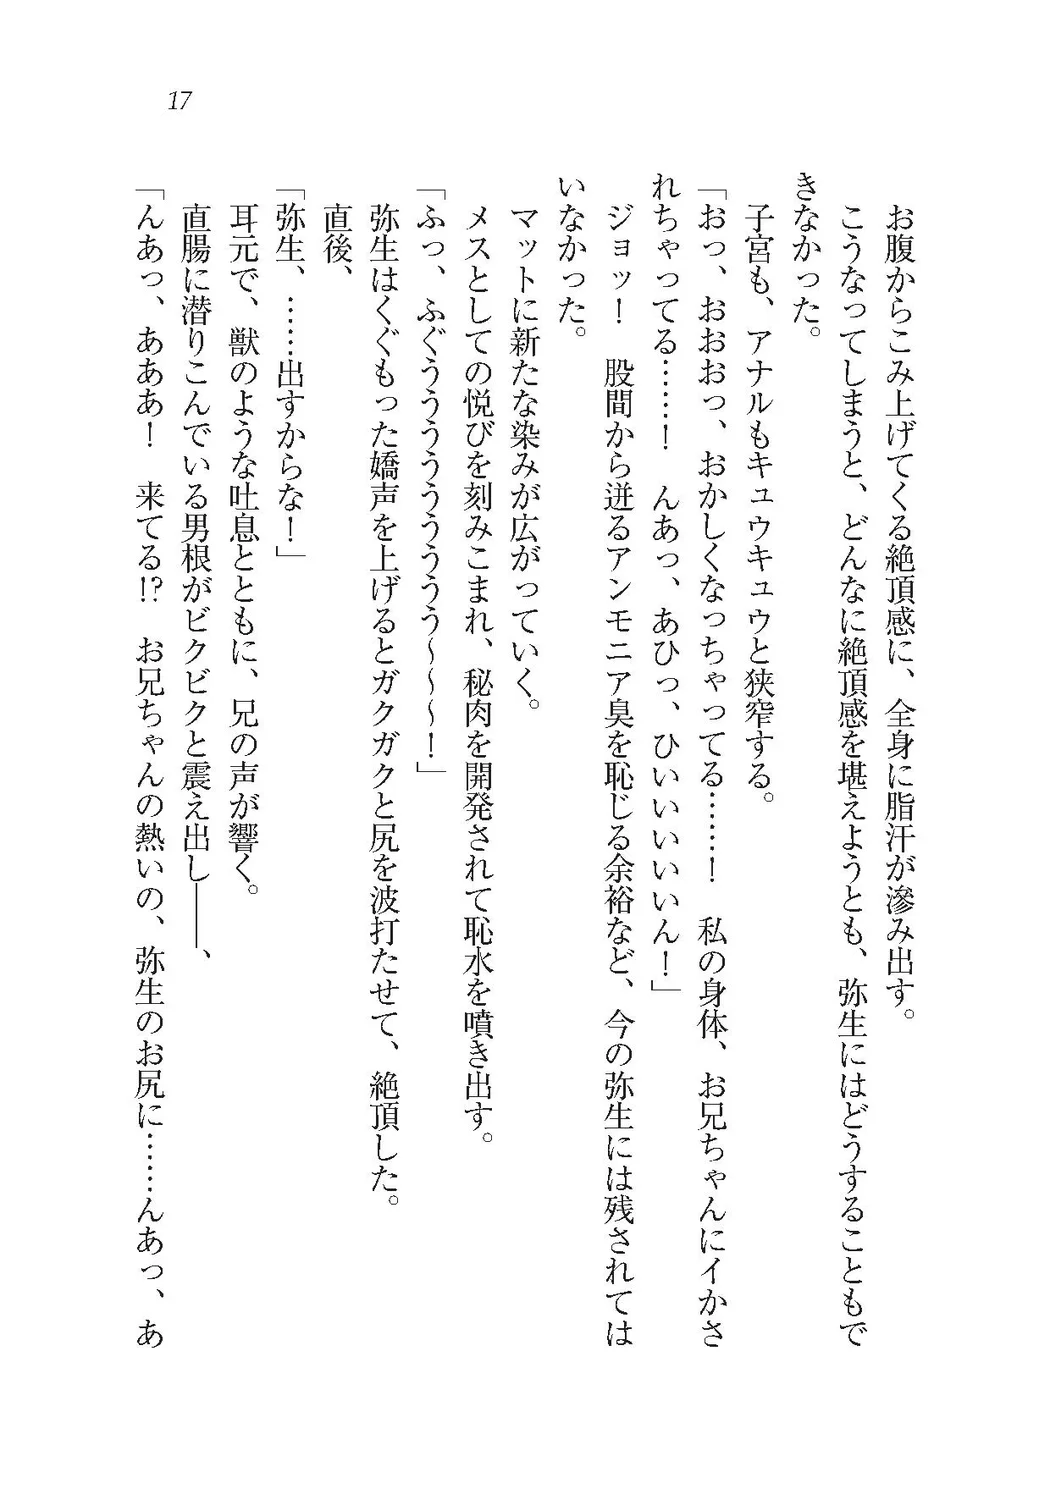 17
お腹からこみ上げてくる絶頂感に、全身に脂汗が滲み出す。
こうなってしまうと、どんなに絶頂感を堪えようとも、弥生にはどうすることもで
きなかった。
子宮も、アナルもキュウキュウと狭窄する。
「おっ、おおおっ、おかしくなっちゃってる……！　私の身体、お兄ちゃんにイかさ
れちゃってる……！　んあっ、あひっ、ひいいいいん！」
ジョッ！　股間から迸るアンモニア臭を恥じる余裕など、今の弥生には残されては
いなかった。
マットに新たな染みが広がっていく。
メスとしての悦びを刻みこまれ、秘肉を開発されて恥水を噴き出す。
「ふっ、ふぐうううううううう～～～！」
弥生はくぐもった嬌声を上げるとガクガクと尻を波打たせて、絶頂した。
直後、
「弥生、……出すからな！」
耳元で、獣のような吐息とともに、兄の声が響く。
直腸に潜りこんでいる男根がビクビクと震え出し――、
「んあっ、あああ！　来てる!?　お兄ちゃんの熱いの、弥生のお尻に……んあっ、あ